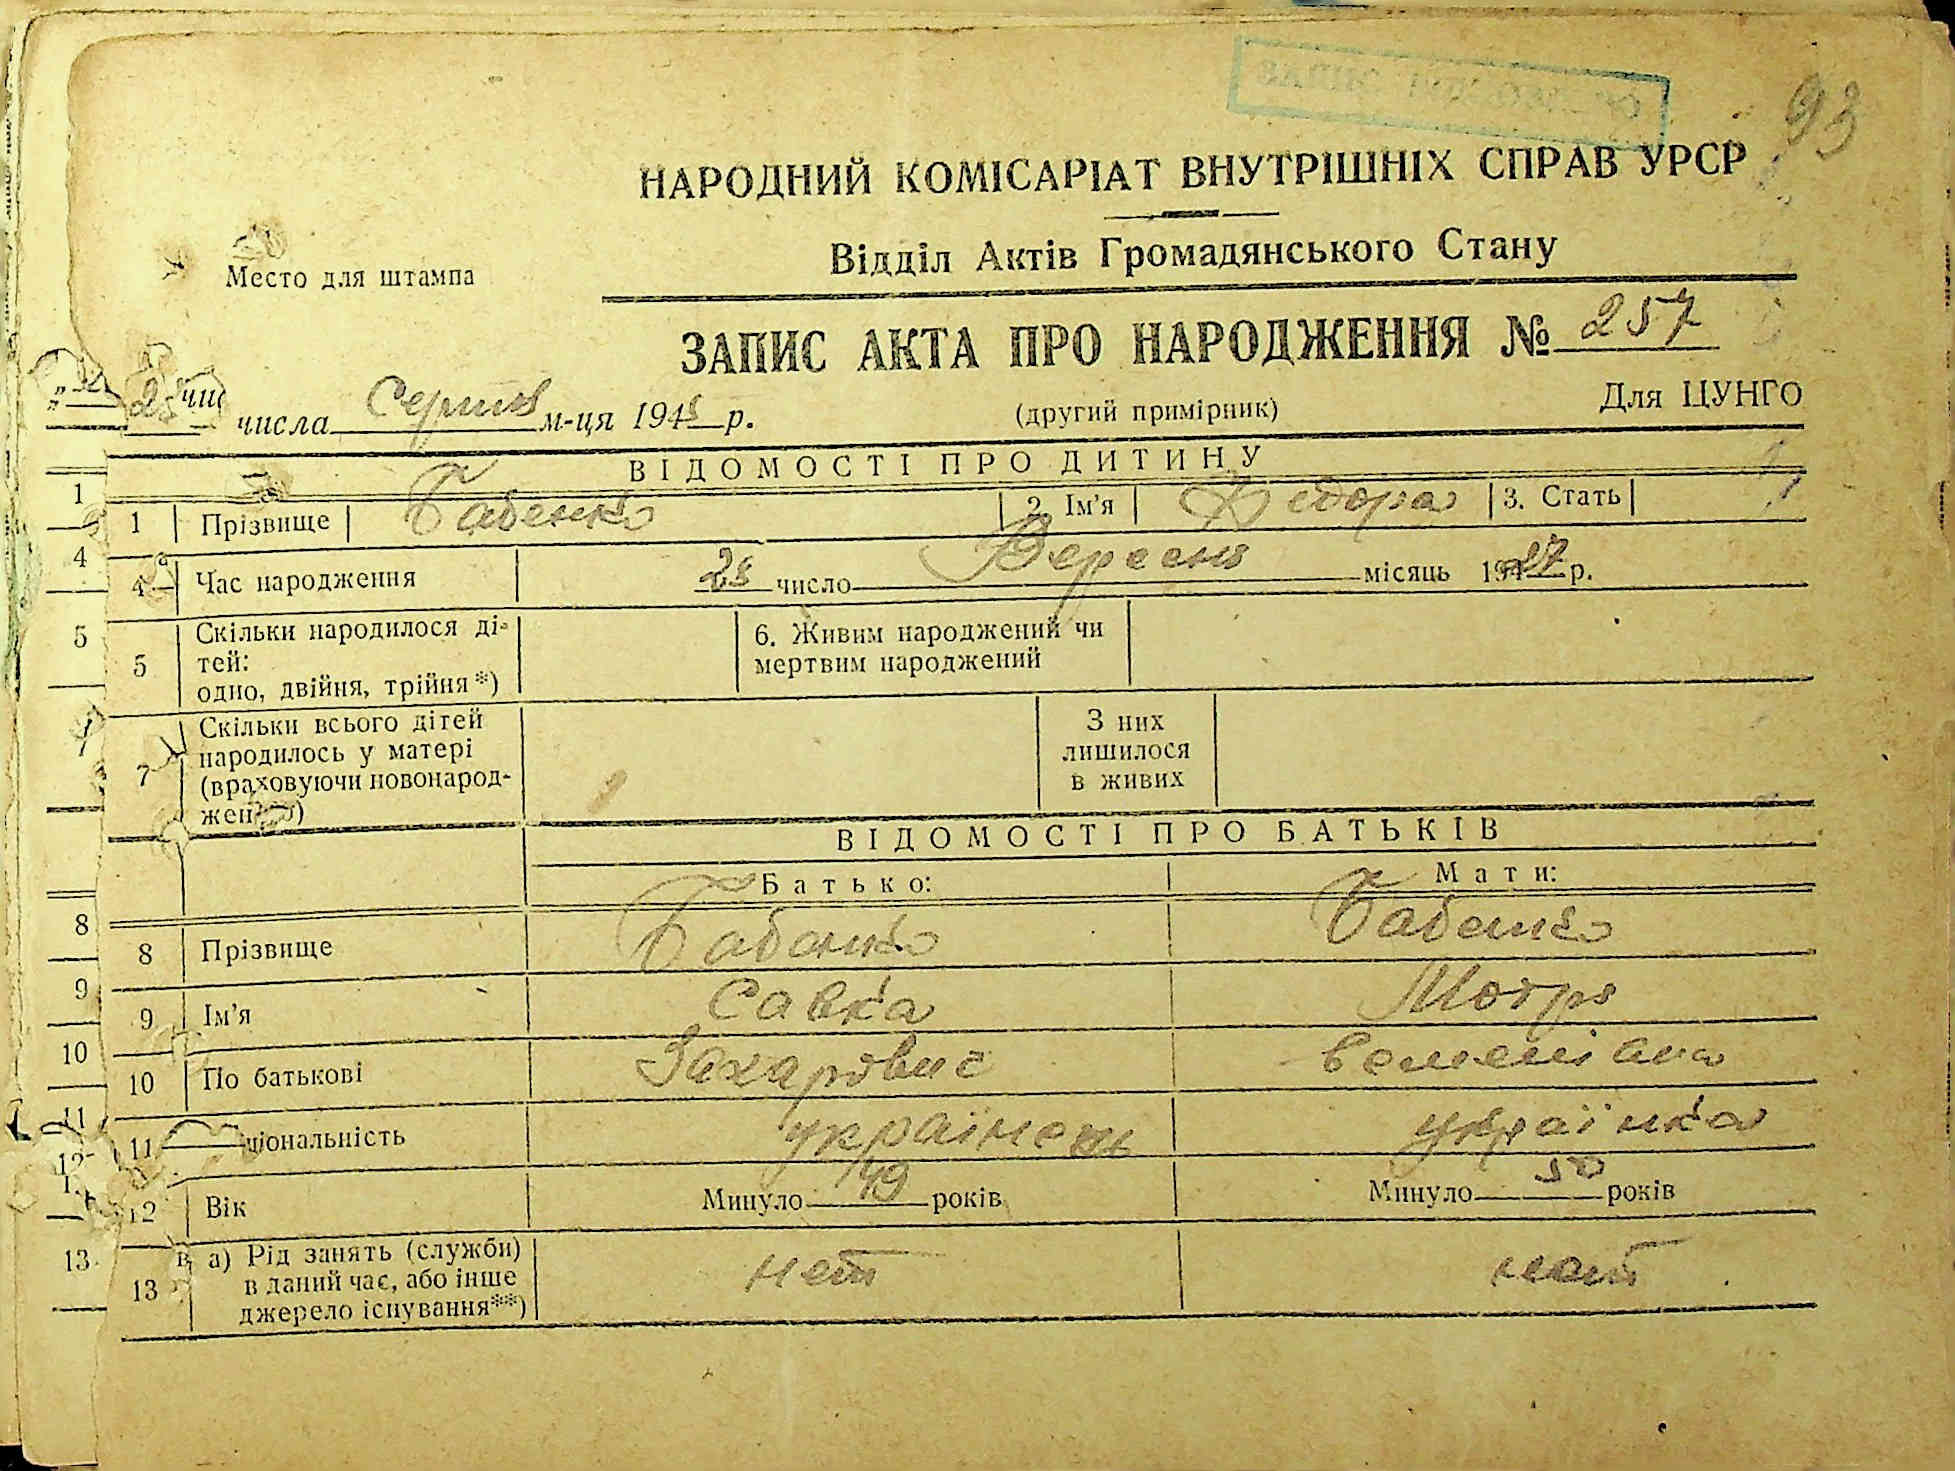 93
НАРОДНИЙ КОМІСАРІАТ ВНУТРІШНІХ СПРАВ УРСР
Відділ Актів Громадянського Стану
Место для штампа
ЗАПИС АКТА ПРО НАРОДЖЕННЯ № 257
25 числа Серпня м-ця 1945 р.
(другий примірник)
Для ЦУНГО
ВІДОМОСТІ ПРО ДИТИНУ
1 Прізвище Бабенко 2. Ім'я Федора 3. Стать
4 Час народження 28 число Вересня місяць 1927 р.
5 Скільки народилося ді-
тей:
одно, двійня, трійня*)
6. Живим народжений чи
мертвим народжений
7 Скільки всього дітей
народилось у матері
(враховуючи новонарод-
жен )
З них
лишилося
в живих
ВІДОМОСТІ ПРО БАТЬКІВ
Батько: Мати:
8 Прізвище Бабенко Бабенко
9 Ім'я Савка Мотря
10 По батькові Захарович Семенівна
11 ціональність українець українка
12 Вік Минуло 49 років Минуло 50 років
13 а) Рід занять (служби)
в даний час, або інше
джерело існування**)
нет нет
1
4
5
8
9
10
11
12
13